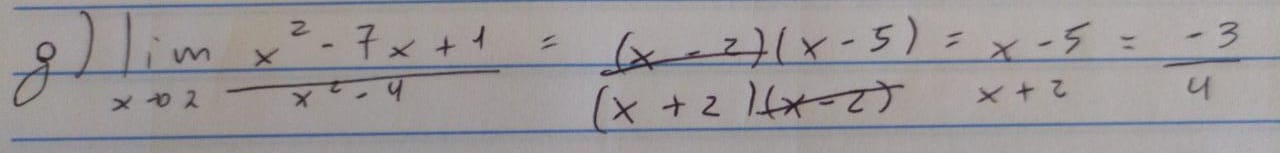 g) lim x→2 (x² - 7x + 1)/(x² - 4) = (x - 2)(x - 5)/(x + 2)(x - 2) = (x - 5)/(x + 2) = -3/4